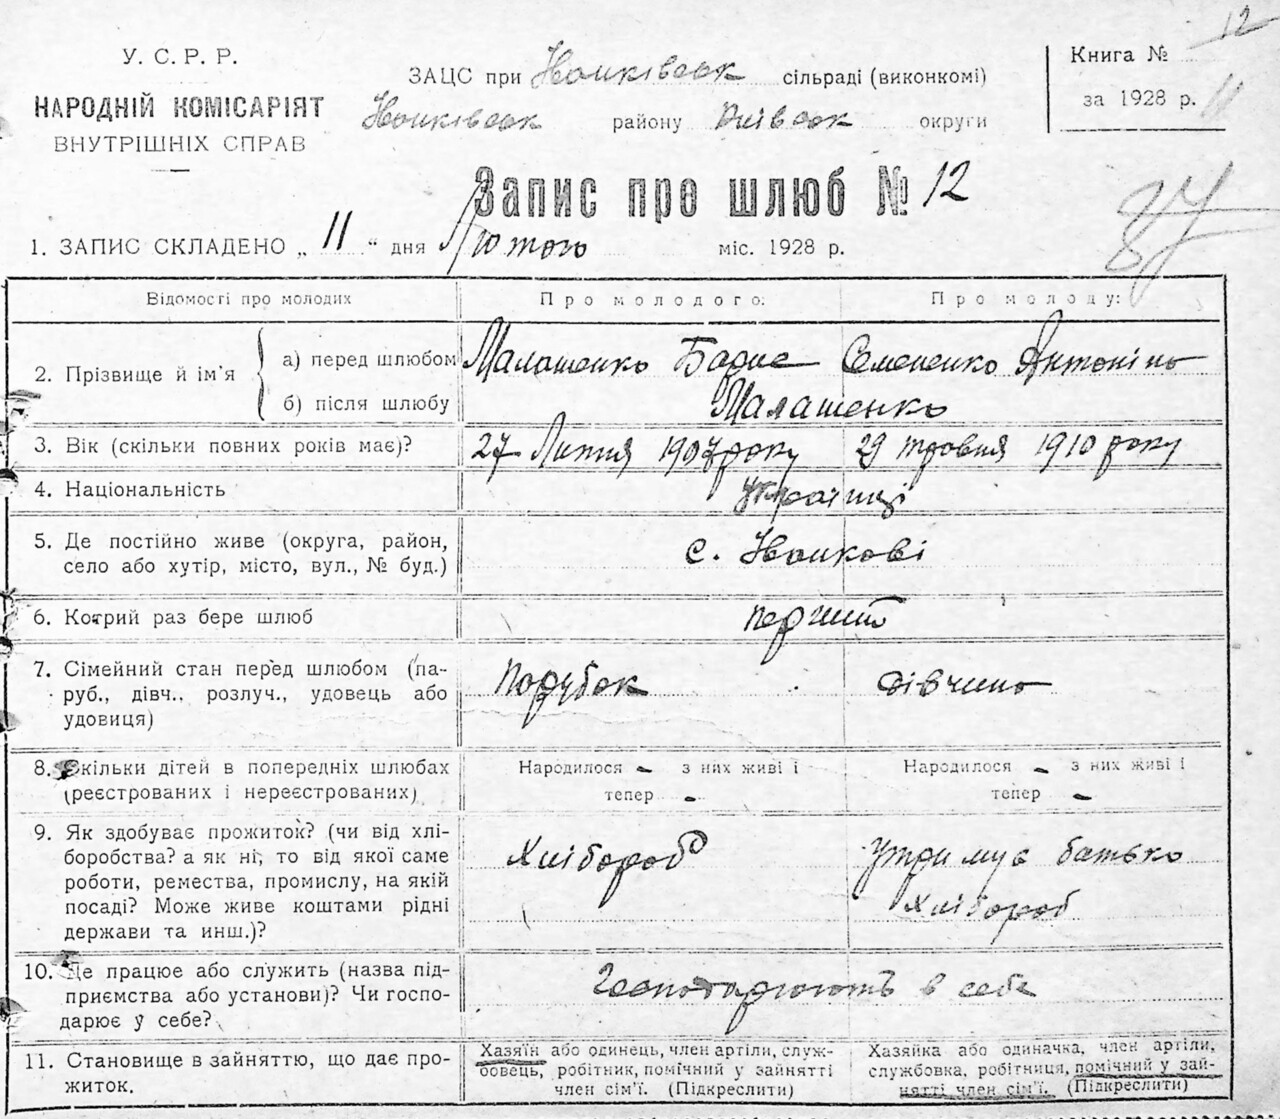 12
У. С. Р. Р.
НАРОДНІЙ КОМІСАРІЯТ
ВНУТРІШНІХ СПРАВ
ЗАЦС при сільраді (виконкомі)
району округи
Книга №
за 1928 р. 11
Запис про шлюб № 12
1. ЗАПИС СКЛАДЕНО „ 11 “ дня Лютого міс. 1928 р.
Відомості про молодих Про молодого: Про молоду:
2. Прізвище й ім'я
а) перед шлюбом Малашенко Борис Семененко Антоніна
б) після шлюбу Малашенко
3. Вік (скільки повних років має)? 27 Липня 1907 року 29 травня 1910 року
4. Національність Українці
5. Де постійно живе (округа, район,
село або хутір, місто, вул., № буд.)
с.
6. Котрий раз бере шлюб перший
7. Сімейний стан перед шлюбом (па-
руб., дівч., розлуч., удовець або
удовиця)
Парубок дівчина
8. Скільки дітей в попередніх шлюбах
(реєстрованих і нереєстрованих)
Народилося - з них живі і
тепер -
Народилося - з них живі і
тепер -
9. Як здобуває прожиток? (чи від хлі-
боробства? а як ні, то від якої саме
роботи, ремества, промислу, на якій
посаді? Може живе коштами рідні
держави та инш.)?
Хлібороб
Утримує батько
Хлібороб
10. Де працює або служить (назва під-
приємства або установи)? Чи госпо-
дарює у себе?
Господарюють в себе
11. Становище в зайняттю, що дає про-
житок.
Хазяїн або одинець, член артіли, служ-
бовець, робітник, помічний у зайнятті
член сім'ї. (Підкреслити)
Хазяйка або одиначка, член артіли,
службовка, робітниця, помічний у зай-
нятті член сім'ї. (Підкреслити)